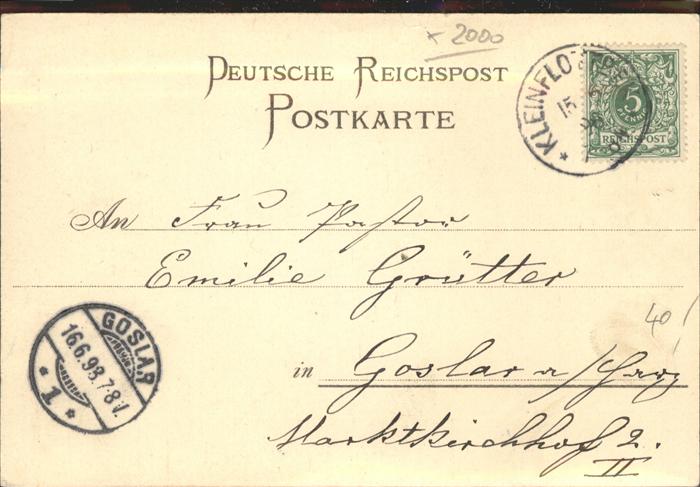 x 2000
DEUTSCHE REICHSPOST
POSTKARTE
5
PFENNIG
REICHSPOST
15
An Frau Pastor
Emilie Grütter
in Goslar a/Harz
Marktkirchhof 2.
II
40
GOSLAR
16.6.98.7-8V.
* 1 *